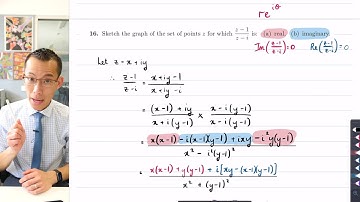 re^{iθ}
16. Sketch the graph of the set of points z for which \frac{z-1}{z-i} is: (a) real (b) imaginary.
Im(\frac{z-1}{z-i})=0 Re(\frac{z-1}{z-i})=0
Let z = x + iy
∴ \frac{z-1}{z-i} = \frac{x+iy-1}{x+iy-i}
= \frac{(x-1)+iy}{x+i(y-1)} × \frac{x-i(y-1)}{x-i(y-1)}
= \frac{x(x-1)-i(x-1)(y-1)+ixy-i²y(y-1)}{x²-i²(y-1)²}
= \frac{x(x-1)+y(y-1)+i[xy-(x-1)(y-1)]}{x²+(y-1)²}